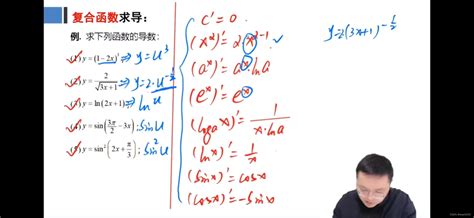 复合函数求导：
例. 求下列函数的导数：
(1) y = (1-2x)³ ⇒ y=u³
(2) y = 2/√(3x+1) ⇒ y=2·u^(-1/2)
(3) y = ln(2x+1) ⇒ ln u
(4) y = sin(3π/2 - 3x) ; sin u
(5) y = sin²(2x + π/3) ; sin² u
C' = 0
(x²)' = 2x²⁻¹
(aˣ)' = aˣ·ln a
(eˣ)' = eˣ
(logₐx)' = 1/(x·ln a)
(ln x)' = 1/x
(sin x)' = cos x
(cos x)' = -sin x
y=2(3x+1)^(-1/2)